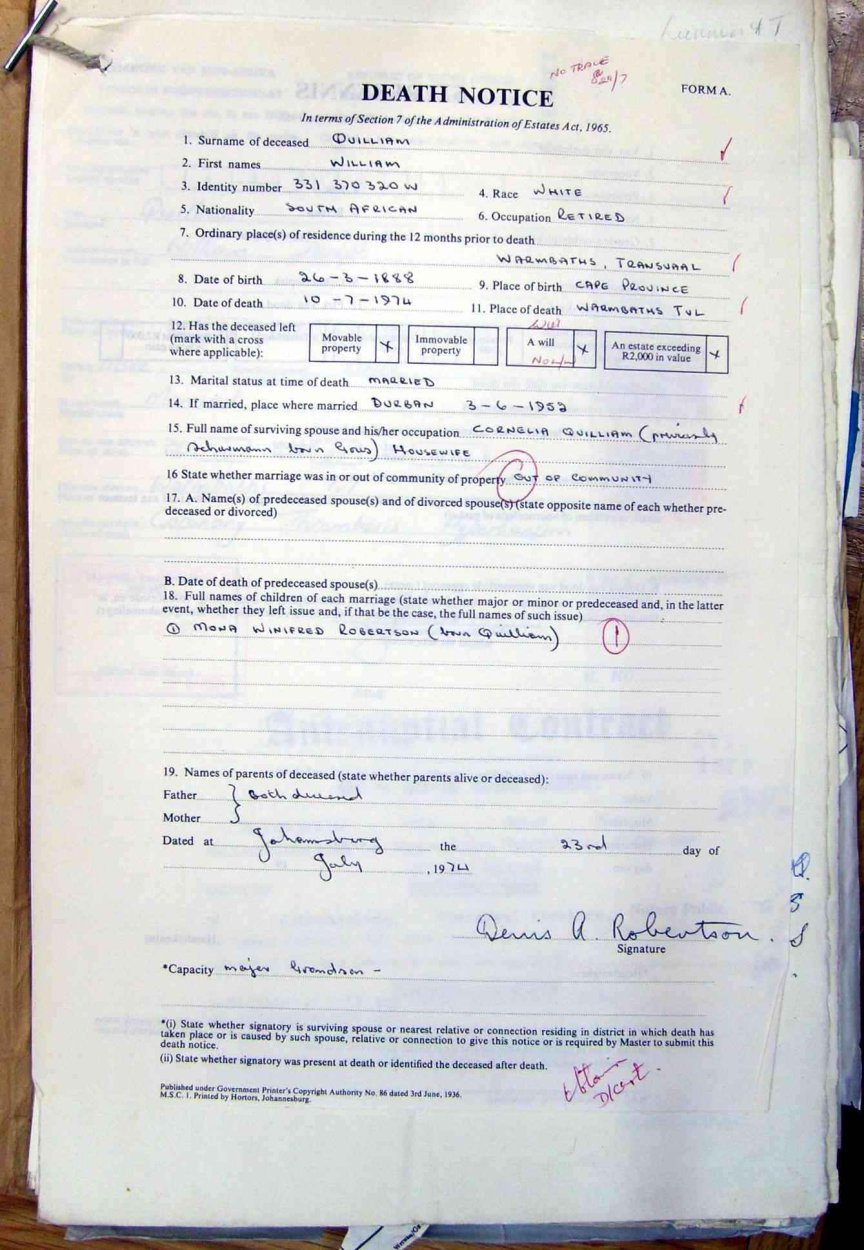 NO TRACE
DEATH NOTICE
FORM A.
In terms of Section 7 of the Administration of Estates Act, 1965.
1. Surname of deceased QUILLIAM
2. First names WILLIAM
3. Identity number 331 370320 W
4. Race WHITE
5. Nationality SOUTH AFRICAN
6. Occupation RETIRED
7. Ordinary place(s) of residence during the 12 months prior to death
WARMBATHS, TRANSVAAL
8. Date of birth 26-3-1888
9. Place of birth CAPE PROVINCE
10. Date of death 10-7-1974
11. Place of death WARMBATHS TVL
12. Has the deceased left
(mark with a cross
where applicable):
Movable
property X
Immovable
property
A will X
An estate exceeding
R2,000 in value X
13. Marital status at time of death MARRIED
14. If married, place where married DURBAN 3-6-1952
15. Full name of surviving spouse and his/her occupation CORNELIA QUILLIAM (previously
born HOUSEWIFE
16 State whether marriage was in or out of community of property OUT OF COMMUNITY
17. A. Name(s) of predeceased spouse(s) and of divorced spouse(s) (state opposite name of each whether pre-
deceased or divorced)
B. Date of death of predeceased spouse(s)
18. Full names of children of each marriage (state whether major or minor or predeceased and, in the latter
event, whether they left issue and, if that be the case, the full names of such issue)
① MONA WINIFRED ROBERTSON (born Quilliam) 1
Antenuptial Contract
19. Names of parents of deceased (state whether parents alive or deceased):
Father } both deceased
Mother
Dated at Johannesburg the 23rd day of
July, 1974
Denis A. Robertson.
Signature
*Capacity major Grandson -
*(i) State whether signatory is surviving spouse or nearest relative or connection residing in district in which death has
taken place or is caused by such spouse, relative or connection to give this notice or is required by Master to submit this
death notice.
(ii) State whether signatory was present at death or identified the deceased after death.
Obtain
D/Cert.
Published under Government Printer's Copyright Authority No. 86 dated 3rd June, 1936.
M.S.C. 1. Printed by Hortors, Johannesburg.